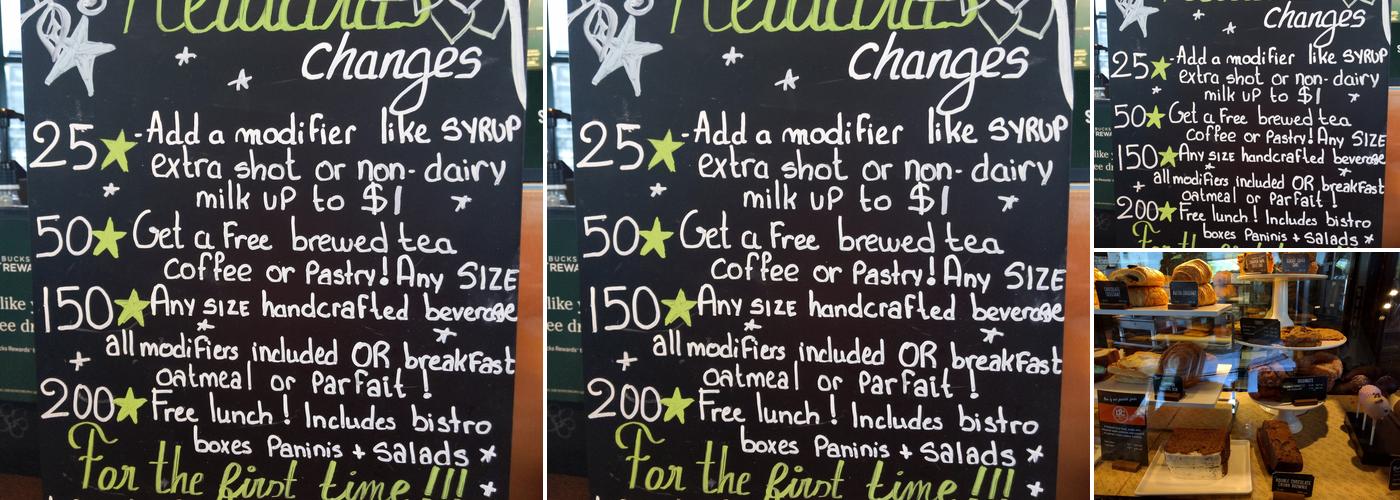 Rewards
changes
25 - Add a modifier like SYRUP
extra shot or non-dairy
milk up to $1
50 Get a Free brewed tea
coffee or Pastry! Any SIZE
150 Any SIZE handcrafted beverage
all modifiers included OR breakfast
oatmeal or Parfait!
200 Free lunch! Includes bistro
boxes Paninis + Salads
For the first time!!!
BUCKS
REWA
like
ee dr
Rewards
changes
25 - Add a modifier like SYRUP
extra shot or non-dairy
milk up to $1
50 Get a Free brewed tea
coffee or Pastry! Any SIZE
150 Any SIZE handcrafted beverage
all modifiers included OR breakfast
oatmeal or Parfait!
200 Free lunch! Includes bistro
boxes Paninis + Salads
For the first time!!!
BUCKS
REWA
like
ee dr
changes
25 - Add a modifier like SYRUP
extra shot or non-dairy
milk up to $1
50 Get a Free brewed tea
coffee or Pastry! Any SIZE
150 Any SIZE handcrafted beverage
all modifiers included OR breakfast
oatmeal or Parfait!
200 Free lunch! Includes bistro
boxes Paninis + Salads
For the
CHOCOLATE
CROISSANT
DOUBLE CHOCOLATE
CHUNK BROWNIE